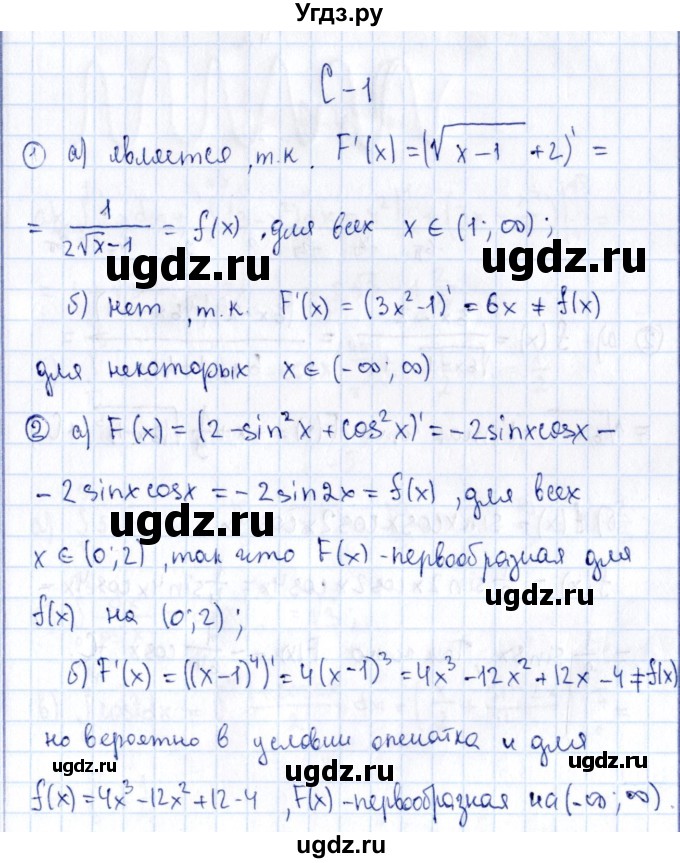 Угдз.ру
С-1
① а) является, т.к. F'(x) = (√(x-1) + 2)' =
= 1/(2√x-1) = f(x), для всех x ∈ (1; ∞);
ugdz.ru ugdz.ru
б) нет, т.к. F'(x) = (3x²-1)' = 6x ≠ f(x)
для некоторых x ∈ (-∞; ∞)
② а) F(x) = (2-sin²x + cos²x)' = -2sinxcosx -
- 2sinxcosx = -2sin2x = f(x), для всех
ugdz.ru
x ∈ (0; 2), так что F(x) - первообразная для
f(x) на (0; 2);
б) F'(x) = ((x-1)⁴)' = 4(x-1)³ = 4x³ - 12x² + 12x - 4 ≠ f(x)
но вероятно в условии опечатка и для
ugdz.ru ugdz.ru
f(x) = 4x³ - 12x² + 12 - 4, F(x) - первообразная на (-∞; ∞).
ugdz.ru ugdz.ru